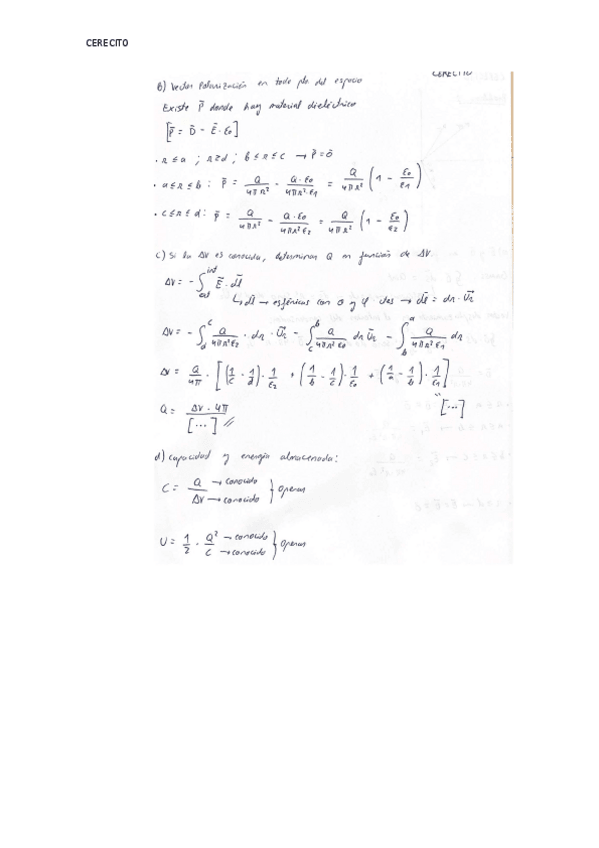 CERECITO
CERECITO
B) Vector Polarización en todo pto del espacio
Existe P̄ donde hay material dieléctrico
[P̄ = D̄ - Ē·ε₀]
· r ≤ a ; r ≥ d ; b ≤ r ≤ c → P̄ = 0̄
· a ≤ r ≤ b : P̄ = Q/(4πr²) - Q·ε₀/(4πr²·ε₁) = Q/(4πr²) (1 - ε₀/ε₁)
· c ≤ r ≤ d : P̄ = Q/(4πr²) - Q·ε₀/(4πr²ε₂) = Q/(4πr²) (1 - ε₀/ε₂)
c) Si la ΔV es conocida, determinar Q en función de ΔV.
ΔV = - ∫_ext^int Ē·dl̄
↳ dl → esféricas con θ y φ ctes → dl̄ = dr·u⃗r
ΔV = - ∫_d^c Q/(4πr²ε₂) · dr · ūr - ∫_c^b Q/(4πr²ε₀) dr ūr - ∫_b^a Q/(4πr²ε₁) dr
ΔV = Q/4π · [(1/c - 1/d)·1/ε₂ + (1/b - 1/c)·1/ε₀ + (1/a - 1/b)·1/ε₁]
" [...]
Q = ΔV·4π/[...] //
d) capacidad y energía almacenada:
C = Q → conocido / ΔV → conocido } operar
U = 1/2 · Q² → conocido / C → conocido } operar